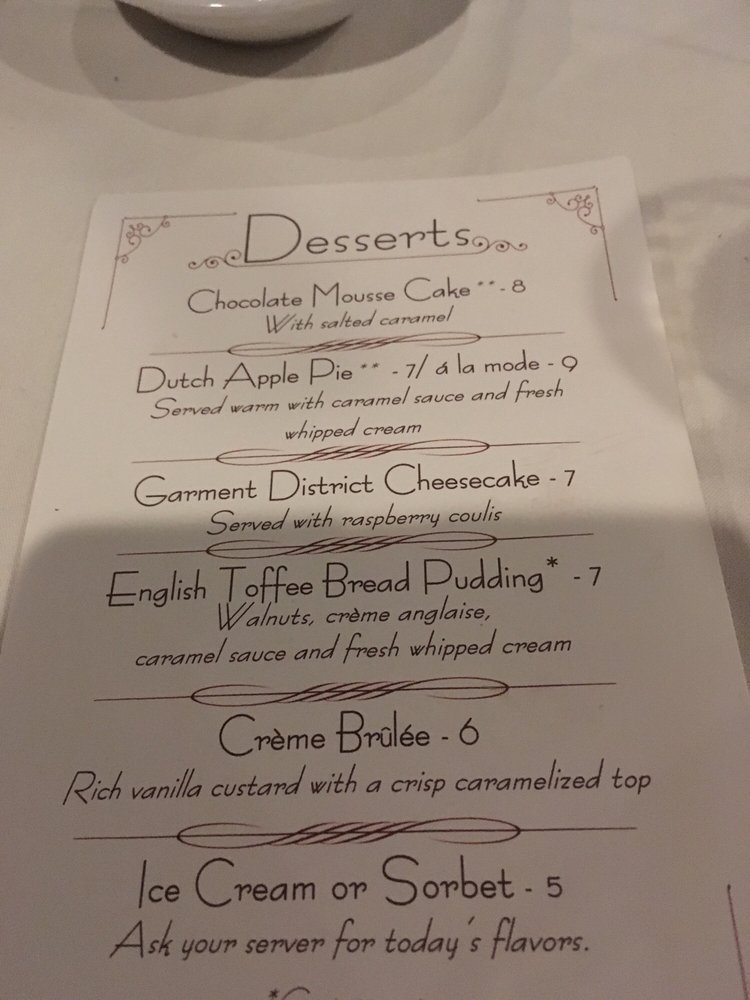 Desserts
Chocolate Mousse Cake ** - 8
With salted caramel
Dutch Apple Pie ** - 7/ á la mode - 9
Served warm with caramel sauce and fresh
whipped cream
Garment District Cheesecake - 7
Served with raspberry coulis
English Toffee Bread Pudding* - 7
Walnuts, crème anglaise,
caramel sauce and fresh whipped cream
Crème Brûlée - 6
Rich vanilla custard with a crisp caramelized top
Ice Cream or Sorbet - 5
Ask your server for today's flavors.